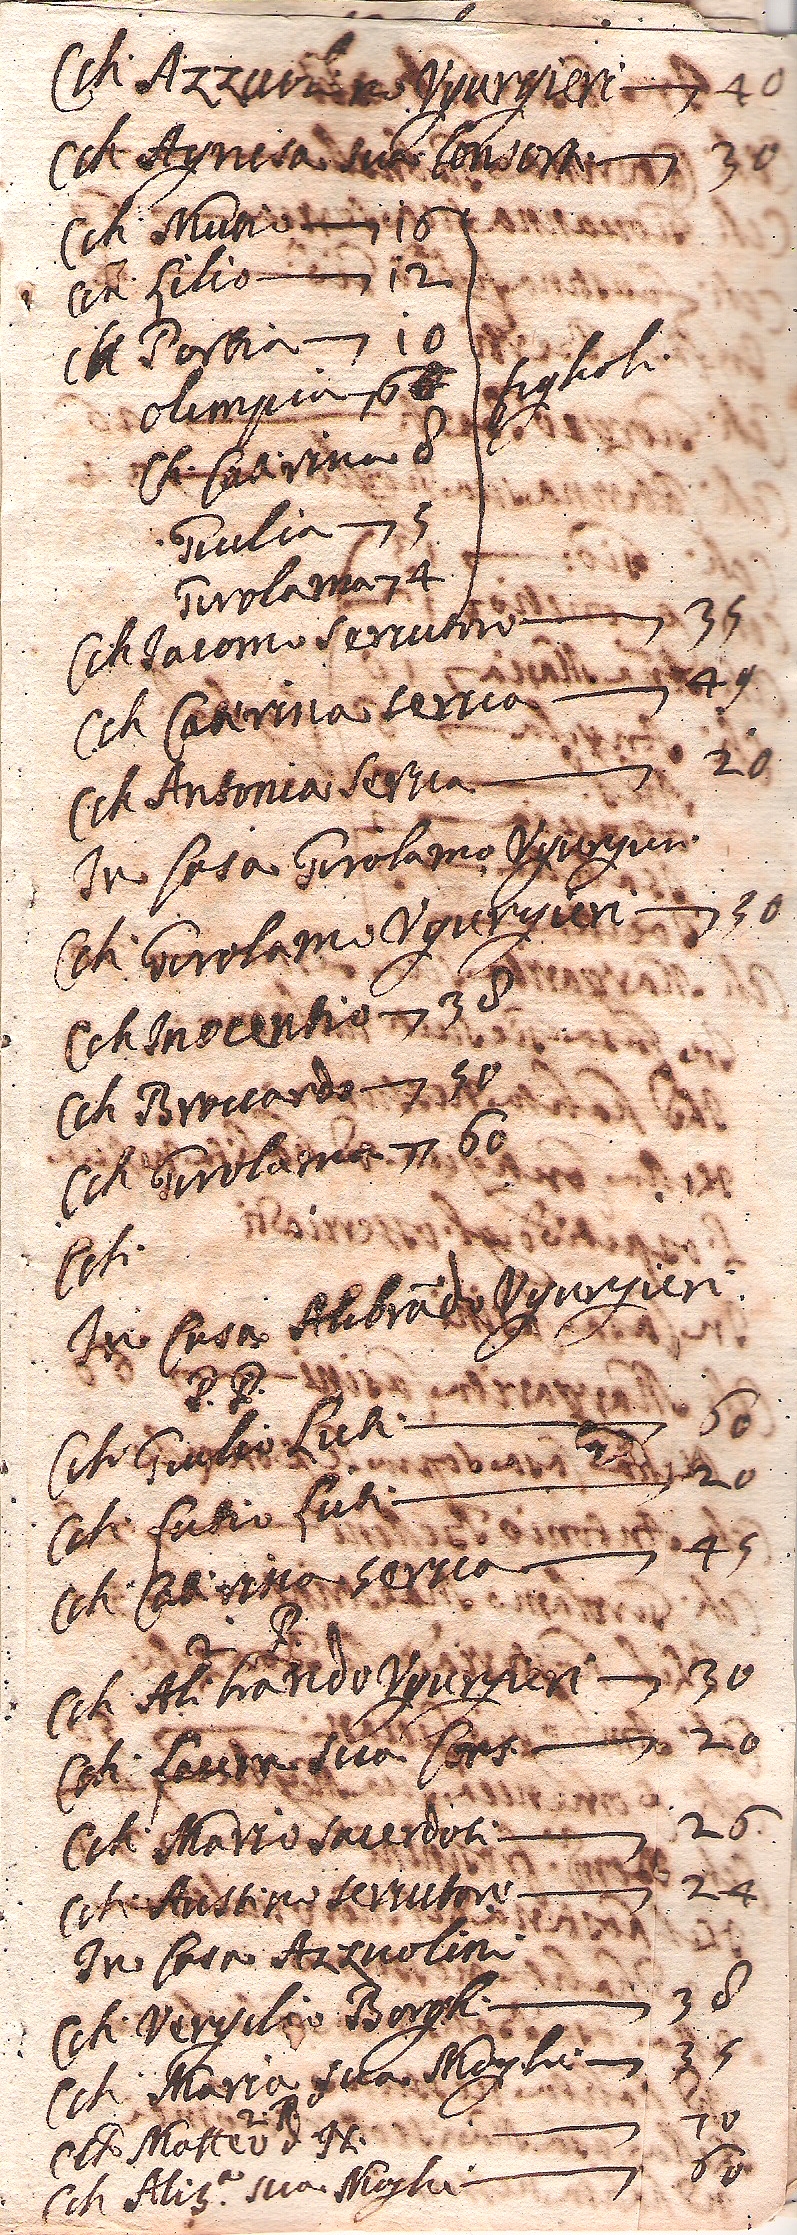 CCh Azzolino Ugurgieri 40
CCh Agnesa sua Consorte 30
CCh Mutio 16
CCh Lilio 12
CCh Portia 10
Olimpia 6
Ch Caterina 8
figlioli
Giulia 5
Girolama 4
CCh Iacomo servitore 35
CCh Caterina serva 49
CCh Antonia serva 20
In Casa Girolamo Ugurgieri
CCh Girolamo Ugurgieri 30
CCh Inocentio 38
CCh Broccardo 50
CCh Girolama 60
CCh
In Casa Alibrādo Ugurgieri
P. P.
CCh Giulio Luti 60
CCh Lutio Luti 20
CCh Caterina serva 45
2 P.
CCh Alibrando Ugurgieri 30
CCh Laura sua Cons. 20
CCh Mario sacerdoti 26
CCh Austino servitore 24
In Casa Azzuolini
CCh Vergilio Borghi 38
CCh Maria sua Moglie 35
2. P.
CCh Matteo d N. 70
CCh Aliz.a sua Moglie 60